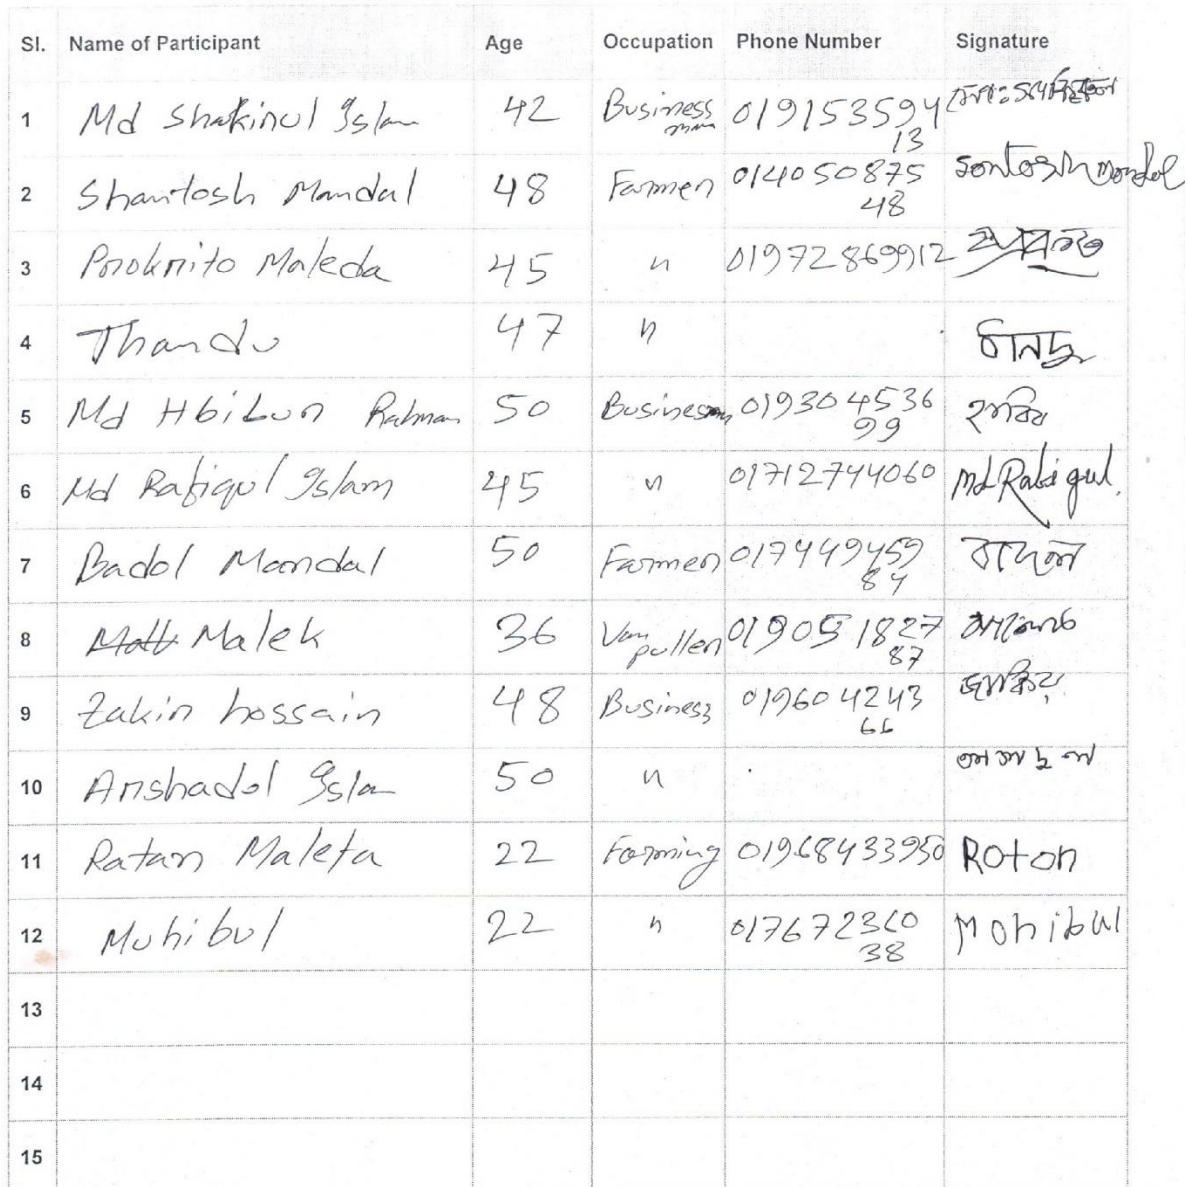 Sl. Name of Participant Age Occupation Phone Number Signature
1 Md Shakinul Islam 42 Business man 01915359413
2 Shantosh Mandal 48 Farmer 01405087548 Sontosh Mondol
3 Prokrito Maleda 45 " 01972869912
4 Thandu 47 " ঠানডু
5 Md Hbibur Rahman 50 Businessman 01930453699 হাবিব
6 Md Rafiqul Islam 45 " 01712744060 Md Rafiqul.
7 Badol Mondal 50 Farmer 01744945984 বাদল
8 Malek 36 Van puller 01905182787
9 Zakir hossain 48 Business 01960424366 জাকির
10 Arshadol Islam 50 "
11 Ratan Maleta 22 Farming 01968433950 Roton
12 Muhibul 22 " 01767236038 Mohibul
13
14
15